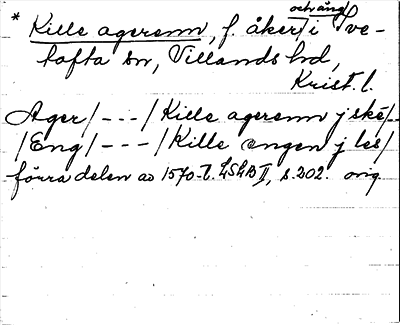 * Kille agerenn, f. åker och äng i Ive-
tofta sn, Villands hd,
Krist. l.
Ager/---/Kille agerenn j ske/--
/Eng/---/Kille engen j les/
förra delen av 1570-t. LSkB II, s. 202. orig.